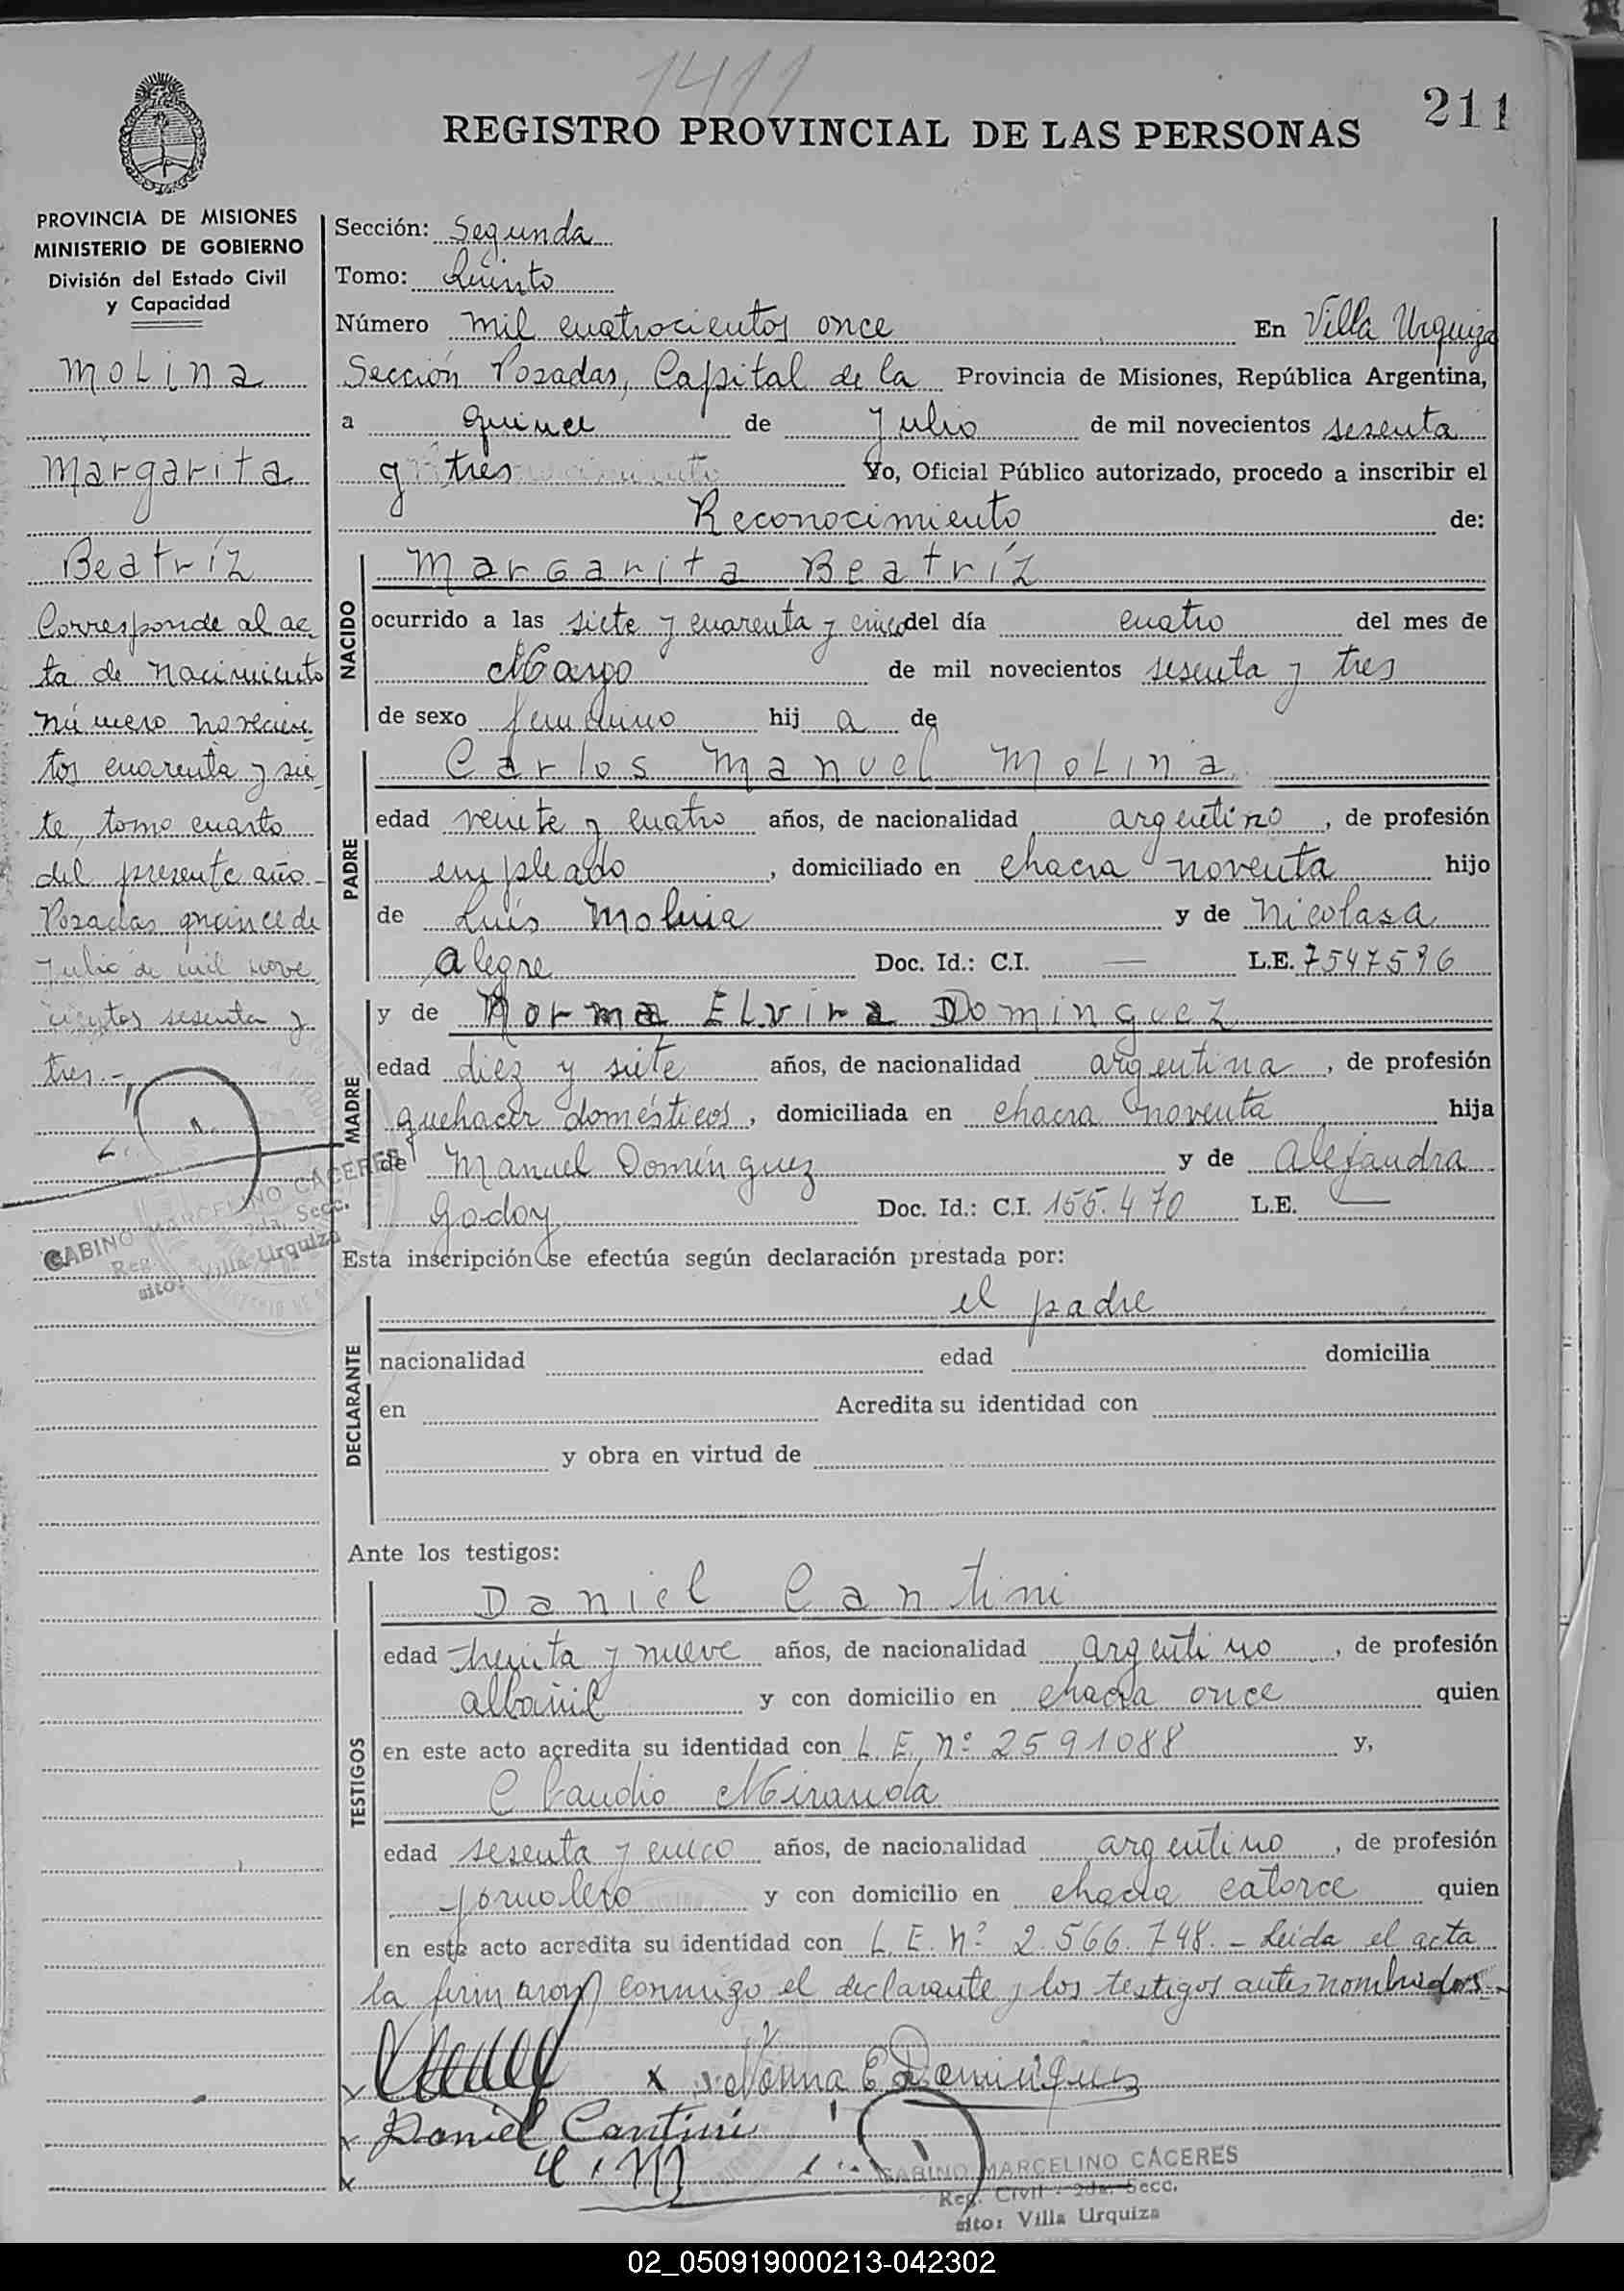 1411
211
REGISTRO PROVINCIAL DE LAS PERSONAS
PROVINCIA DE MISIONES
MINISTERIO DE GOBIERNO
División del Estado Civil
y Capacidad
Molina
Margarita
Beatríz
Corresponde al ac
ta de nacimiento
número novecien
tos cuarenta y sie
te, tomo cuarto
del presente año
Posadas quince de
Julio de mil nove
cientos sesenta y
tres.-
GABINO MARCELINO CÁCERES
Reg. 2da. Secc.
sito: Villa Urquiza
Sección: Segunda
Tomo: Quinto
Número mil cuatrocientos once En Villa Urquiza
Sección Posadas, Capital de la Provincia de Misiones, República Argentina,
a quince de Julio de mil novecientos sesenta
y tres Yo, Oficial Público autorizado, procedo a inscribir el
Reconocimiento de:
NACIDO
Margarita Beatríz
ocurrido a las siete y cuarenta y cinco del día cuatro del mes de
Mayo de mil novecientos sesenta y tres
de sexo femenino hij a de
PADRE
Carlos Manuel Molina
edad veinte y cuatro años, de nacionalidad argentino, de profesión
empleado, domiciliado en chacra noventa hijo
de Luis Molina y de Nicolasa
Alegre Doc. Id.: C.I. — L.E. 7547596
MADRE
y de Norma Elvira Dominguez
edad diez y siete años, de nacionalidad argentina, de profesión
quehacer domésticos, domiciliada en chacra noventa hija
de Manuel Domínguez y de Alejandra
Godoy Doc. Id.: C.I. 155.470 L.E. —
Esta inscripción se efectúa según declaración prestada por:
DECLARANTE
el padre
nacionalidad edad domicilia
en Acredita su identidad con
y obra en virtud de
Ante los testigos:
TESTIGOS
Daniel Cantini
edad treinta y nueve años, de nacionalidad argentino, de profesión
albañil y con domicilio en chacra once quien
en este acto acredita su identidad con L. E. nº 2591088 y,
Claudio Miranda
edad sesenta y cinco años, de nacionalidad argentino, de profesión
jornalero y con domicilio en chacra catorce quien
en este acto acredita su identidad con L. E. nº 2.566.748.- Leída el acta
la firmaron conmigo el declarante y los testigos antes nombrados.-
x Norma E Dominguez
x Daniel Cantini
x C. M
GABINO MARCELINO CÁCERES
Reg. Civil - 2da. Secc.
sito: Villa Urquiza
02_050919000213-042302